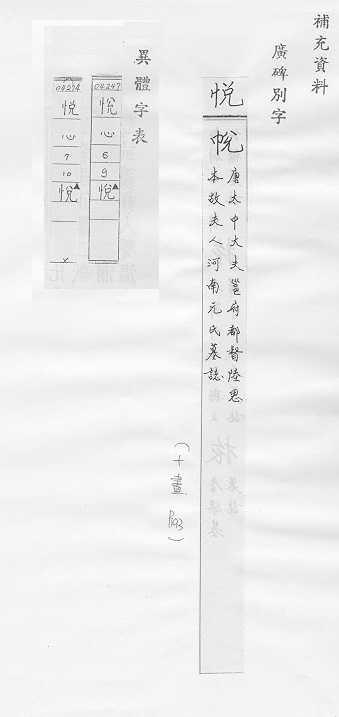 補充資料
廣碑別字
悦
唐太中大夫邕府都督陸思
本故夫人河南元氏墓誌
(十畫 P193)
異體字表
04247
悅
心
6
9
悅▲
04274
悦
心
7
10
悦▲